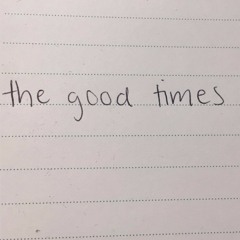 the good times